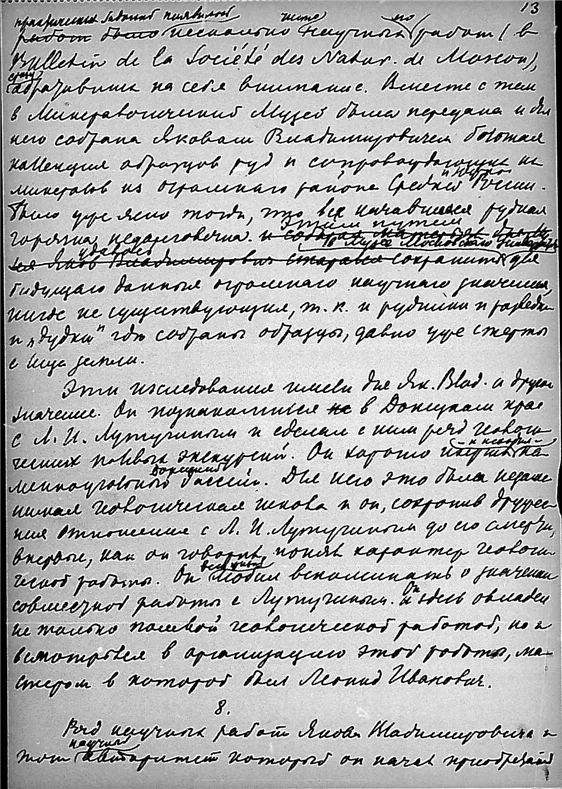 13
практических заданий появились
несколько научных его работ (в
Bulletin de la Société des Natur. de Moscou),
обративших на себя внимание. Вместе с тем
в Минералогический Музей была передана и для
него собрана Яковом Владимировичем богатая
коллекция образцов руд и сопровождающих их
минералов из огромного района Средней и Южной России.
Было уже ясно тогда, что вся начавшаяся рудная
горячка недолговечна. и этим путем
удалось Яков Владимирович старался сохранить для
будущего данныя огромного научного значения
нигде не существующия, т.к. и рудники и разведки
и „дудки" где собраны образцы, давно уже стерты
с лица земли.
Эти изследования имели для Як. Влад. и другое
значение. Он познакомился в Донецком крае
с Л. И. Лутугиным и сделал с ним ряд геологи-
ческих полевых экскурсий. Он хорошо
менноугольный Донецкий бассейн. Для него это была неоце-
нимая геологическая школа и он, сохранив дружес-
кия отношения с Л. И. Лутугиным до его смерти,
впервые, как он говорил, понял характер геологи-
ческой работы. Он всегда любил вспоминать о значении
совместной работы с Лутугиным. Он здесь овладел
не только полевой геологической работой, но и
всмотрелся в организацию этой работы, ма-
стером в которой был Леонид Иванович.
8.
Ряд научных работ Якова Владимировича и
тот научный авторитет который он начал приобретать